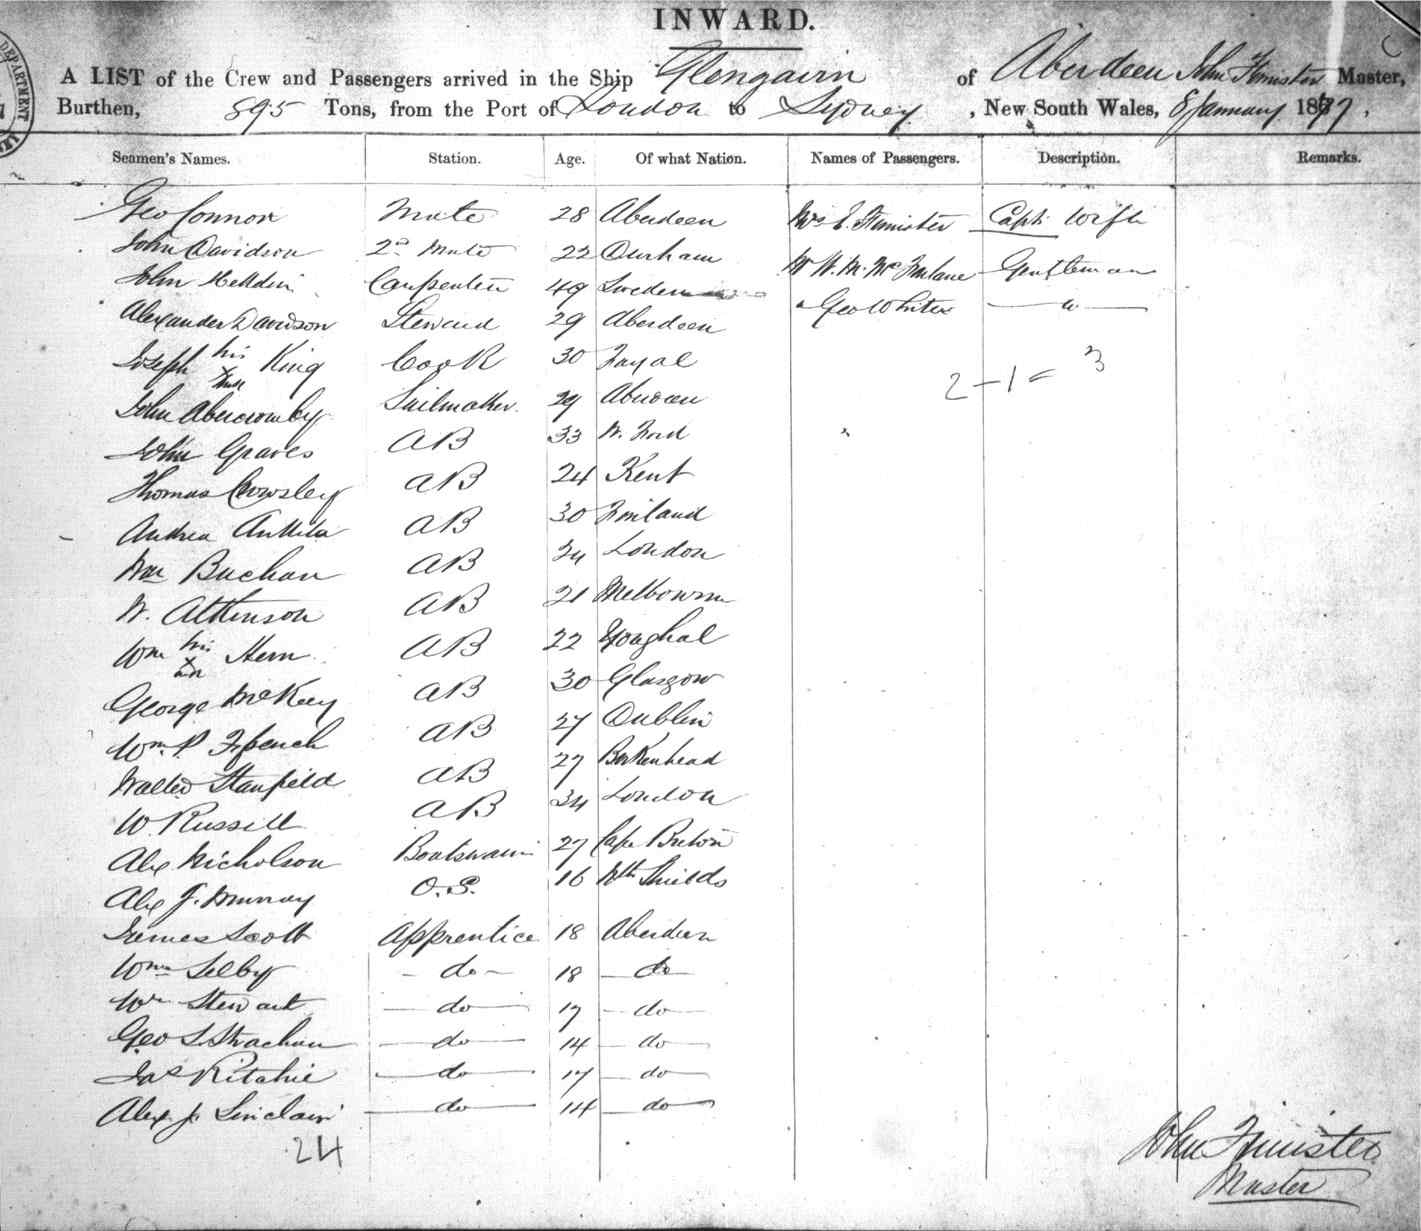 INWARD.
A LIST of the Crew and Passengers arrived in the Ship Glengairn of Aberdeen John Master,
Burthen, 895 Tons, from the Port of London to Sydney, New South Wales, 8 January 1877.
Seamen's Names. Station. Age. Of what Nation. Names of Passengers. Description. Remarks.
Geo Connor Mate 28 Aberdeen Mrs E. Capts Wife
John Davidson 2nd Mate 22 Durham W. M. McFarlane Gentleman
John Carpenter 49 Sweden " Geo Whites
Alexander Davidson Steward 29 Aberdeen
Joseph his X King Cook 30 Fayal
2 - 1 = 3
John Abercromby Sailmaker 29 Aberdeen
John Graves AB 33 W. Ford
Thomas Cowsley AB 24 Kent
Andrea Anttila AB 30 Finland
Wm Buchan AB London
W. Atkinson AB 21 Melbourne
Wm his X Hern AB 22 Youghal
George McKay AB 30 Glasgow
Wm P. Ffrench AB 27 Dublin
Walter Stanfield AB 27 Birkenhead
W. Russell AB 34 London
Alex Nicholson Boatswain 27 Cape Breton
Alex J. Murray O.S. 16 Nth Shields
James Scott Apprentice 18 Aberdeen
Wm Selby do 18 do
Wm Stewart do 17 do
Geo S. Strachan do 14 do
Jas Ritchie do 17 do
Alex J. Sinclair do 14 do
24
John
Master